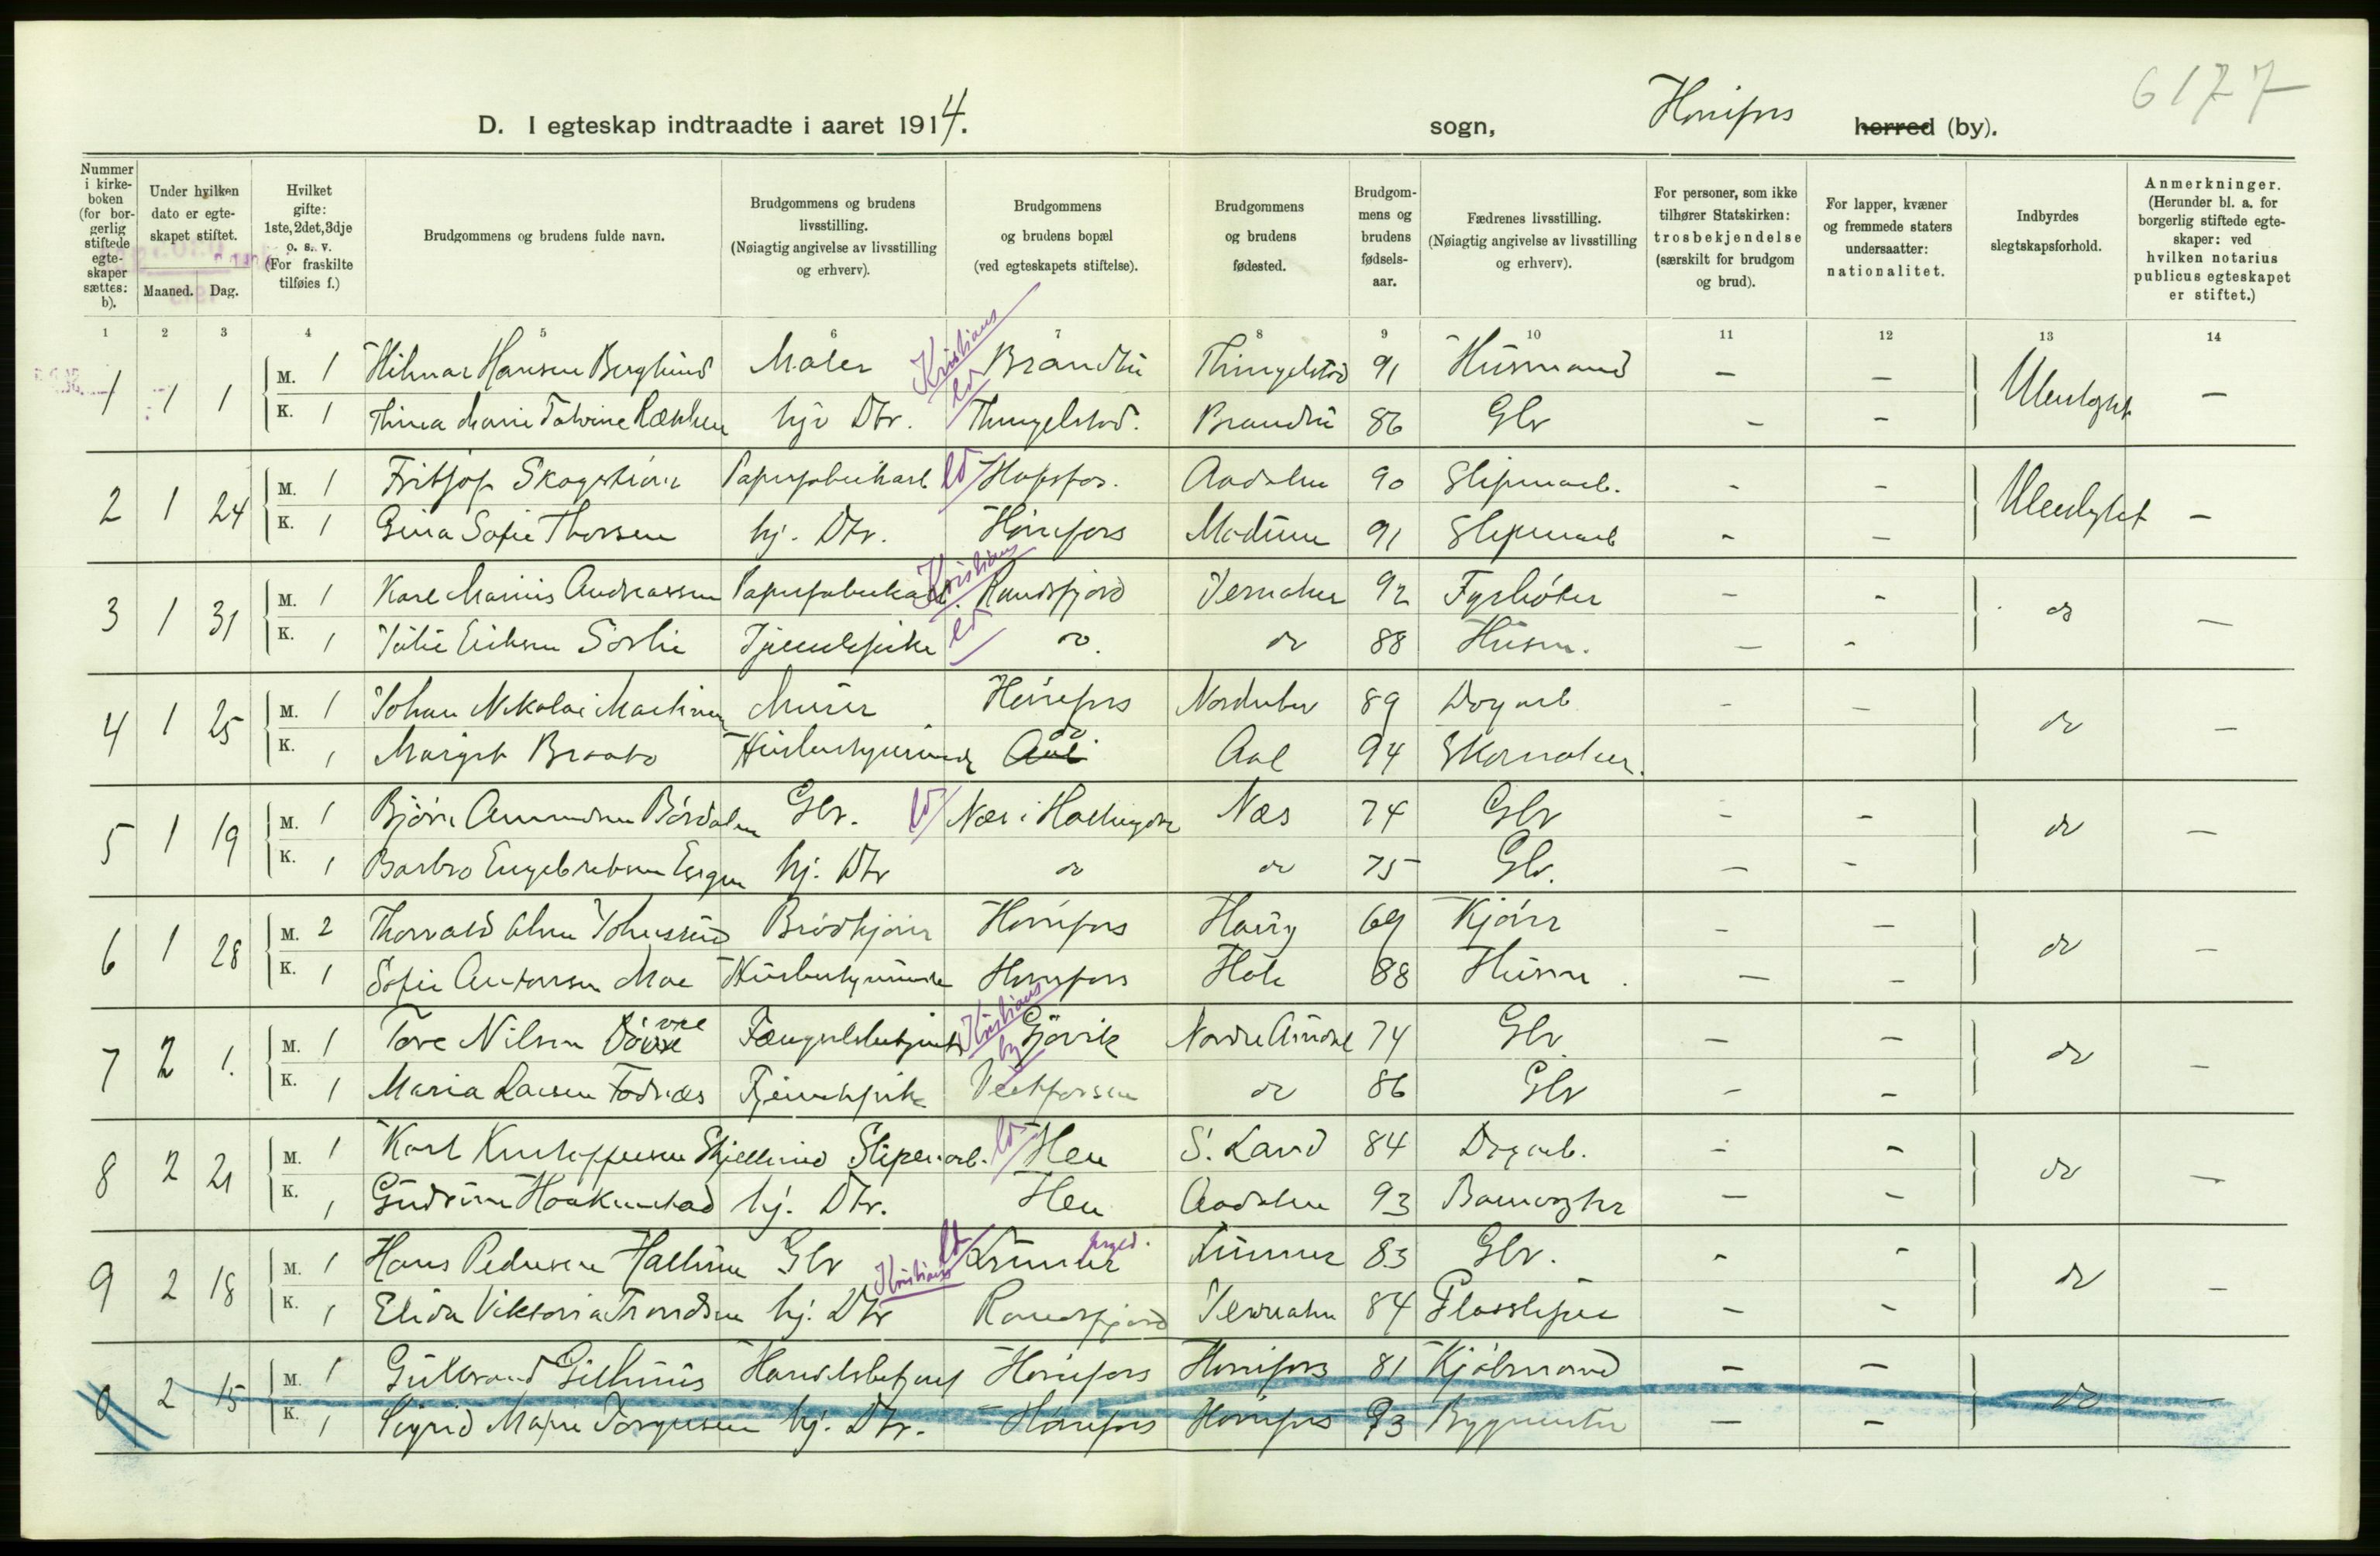 6177
D. I egteskap indtraadte i aaret 1914. sogn, Hønefos herred (by).
Nummer i kirkeboken (for borgerlig stiftede egteskaper sættes: b).
Under hvilken dato er egteskapet stiftet.
Maaned. Dag.
Hvilket gifte: 1ste, 2det, 3dje o. s. v. (For fraskilte tilføies f.)
Brudgommens og brudens fulde navn.
Brudgommens og brudens livsstilling. (Nøiagtig angivelse av livsstilling og erhverv).
Brudgommens og brudens bopæl (ved egteskapets stiftelse).
Brudgommens og brudens fødested.
Brudgommens og brudens fødselsaar.
Fædrenes livsstilling. (Nøiagtig angivelse av livsstilling og erhverv).
For personer, som ikke tilhører Statskirken: trosbekjendelse (særskilt for brudgom og brud).
For lapper, kvæner og fremmede staters undersaatter: nationalitet.
Indbyrdes slegtskapsforhold.
Anmerkninger. (Herunder bl. a. for borgerlig stiftede egteskaper: ved hvilken notarius publicus egteskapet er stiftet.)
1 2 3 4 5 6 7 8 9 10 11 12 13 14
1 1 1 M. 1 Hilmar Hansen Berglund Maler Kristians ld Brandbu Thingelstad 91 Husmand - - Ubeslegtet -
K. 1 Thina Marie hjv Dtr. Thingelstad. Brandbu 86 Gbr - -
2 1 24 M. 1 Fritjof Skogstrøm Papirfabrikarb ld Hofsfos. Aadalen 90 Slipearb. - - Ubeslegtet -
K. 1 Gina Sofie Thorsen hj. Dtr. Hønefos Modum 91 Sliperarb - -
3 1 31 M. 1 Karl Marius Andreassen Papirfabrikarb. Kristians ld Randsfjord Jevnaker 92 Fyrbøter - - do -
K. 1 Julie Eriksen Sørlie Tjenestepike do. do 88 Husm. - -
4 1 25 M. 1 Johan Nikolai Martinsen Murer Hønefos Norderhov 89 Dagarb - - do -
K. 1 Margit Braato Husbestyrerinde Aal do Aal 94 Skomaker.
5 1 19 M. 1 Bjørn Amundsen Børdalen Gbr. ld Næs i Hallingdal Næs 74 Gbr - - do -
K. 1 Barbro Engebretsen hj. Dtr do do 75 Gbr. - -
6 1 28 M. 2 Thorvald Olsen Brødkjører Hønefos Haug 69 Kjører - - do -
K. 1 Sofie Antonsen Moe Husbestyrerinde Hønefos Hole 88 Husm. - -
7 2 1. M. 1 Tore Nilsen Fængselsbetjent Kristians by Gjøvik Nordre Aurdal 74 Gbr - - do -
K. 1 Maria Larsen Fodnæs Tjenestepike Vestfossen do 86 Gbr - -
8 2 21 M. 1 Karl Kristoffersen Skjellerud Sliperiarb. ld Hen S. Land 84 Dagarb. - - do -
K. 1 Gudrun Haakenstad hj. Dtr. Hen Aadalen 93 Banevogter - -
9 2 18 M. 1 Hans Pedersen Hallum Gbr ld Lunner prgld. Lunner 83 Gbr. - - do -
K. 1 Elida Viktoria Trondsen hj. Dtr Kristians Randsfjord Jevnaker 84 Glassliper - -
0 2 15 M. 1 Gulbrand Gillhuus Handelsbetjent Hønefos Hønefos 81 Kjøbmand - - do -
K. 1 Sigrid Marie Torgersen hj. Dtr. Hønefos Hønefos 93 Bygmester - -